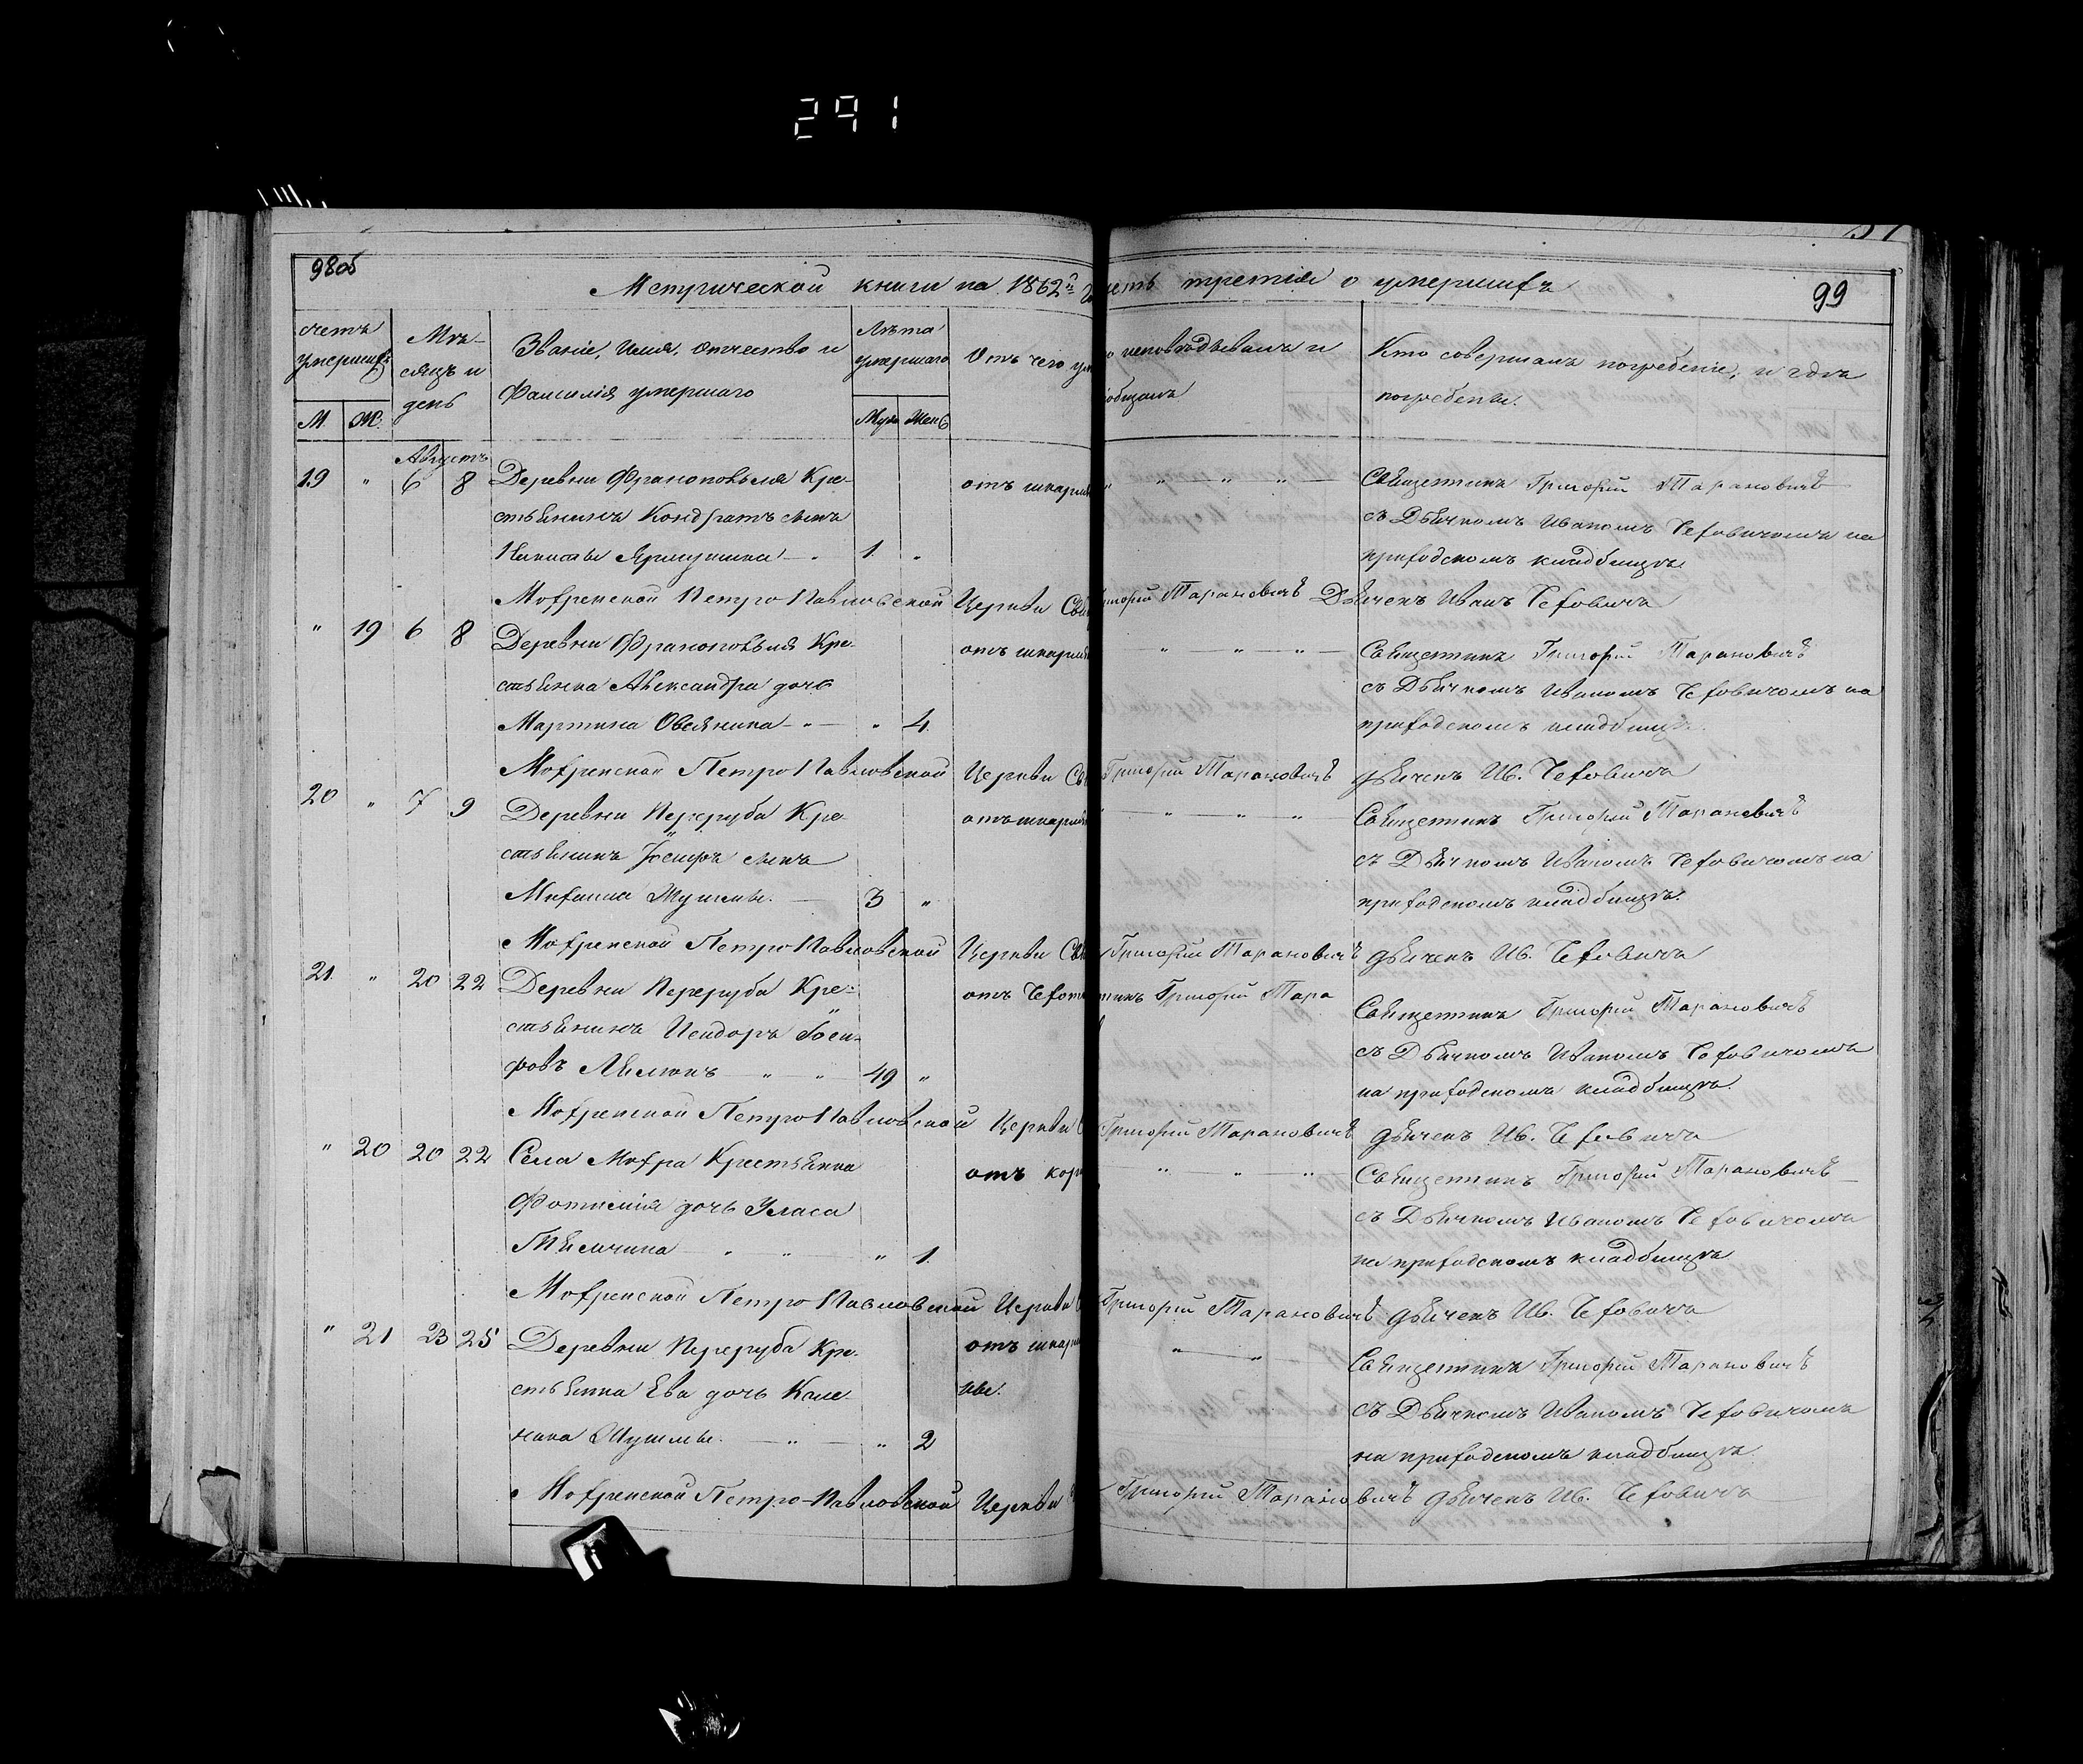 291
98об
99
Метрической книги на 1862й
третія о умершихъ
счетъ умершихъ
М. Ж.
Мѣ-
сяцъ и
день
Званіе, Имя, Отчество и
Фамилія умершаго
Лѣта
умершаго
Муж Женс
Отъ чего
исповѣдывалъ и
Кто совершалъ погребеніе, и гдѣ
погребены.
Августъ
19 " 6 8 Деревни Франополья Кре-
стьянинъ Кондратъ сынъ
1 "
отъ шкарл
Священникъ Григорій Тарановичъ
съ Дьячкомъ Иваномъ Чеховичомъ на
приходскомъ кладбищѣ
Мохренской Петро Павловской Церкви Григорій Тарановичъ Дьячекъ Иванъ Чеховичъ
" 19 6 8 Деревни Франополья Кре-
стьянка Александра дочь
Мартина Овсяника " 4
отъ шкарл
Священникъ Григорій Тарановичъ
съ Дьячкомъ Иваномъ Чеховичомъ на
приходскомъ кладбищѣ.
Мохренской Петро Павловской Церкви Григорій Тарановичъ дьячекъ Ив. Чеховичъ
20 " 7 9 Деревни Переруба Кре-
стьянинъ Іосифъ сынъ
Михаила 3 "
отъ шкарл
Священникъ Григорій Тарановичъ
съ Дьячкомъ Иваномъ Чеховичомъ на
приходскомъ кладбищѣ.
Мохренской Петро Павловской Церкви Григорій Тарановичъ дьячекъ Ив. Чеховичъ
21 " 20 22 Деревни Переруба Кре-
стьянинъ Исидоръ Іоси-
фовъ 49 "
отъ Чехот
Григорій Тара
Священникъ Григорій Тарановичъ
съ Дьячкомъ Иваномъ Чеховичомъ
на приходскомъ кладбищѣ.
Мохренской Петро Павловской Церкви Григорій Тарановичъ дьячекъ Ив. Чеховичъ
" 20 20 22 Села Мохра Крестьянка
Фотинія дочь Уласа
" 1
отъ кор
Священникъ Григорій Тарановичъ
съ Дьячкомъ Иваномъ Чеховичомъ
на приходскомъ кладбищѣ
Мохренской Петро Павловской Церкви Григорій Тарановичъ дьячекъ Ив. Чеховичъ
" 21 23 25 Деревни Переруба Кре-
стьянка Ева дочь Кале-
ника Шушлы. " 2
отъ шкарл
Священникъ Григорій Тарановичъ
съ Дьячкомъ Иваномъ Чеховичомъ
на приходскомъ кладбищѣ.
Мохренской Петро-Павловской Церкви Григорій Тарановичъ дьячекъ Ив. Чеховичъ